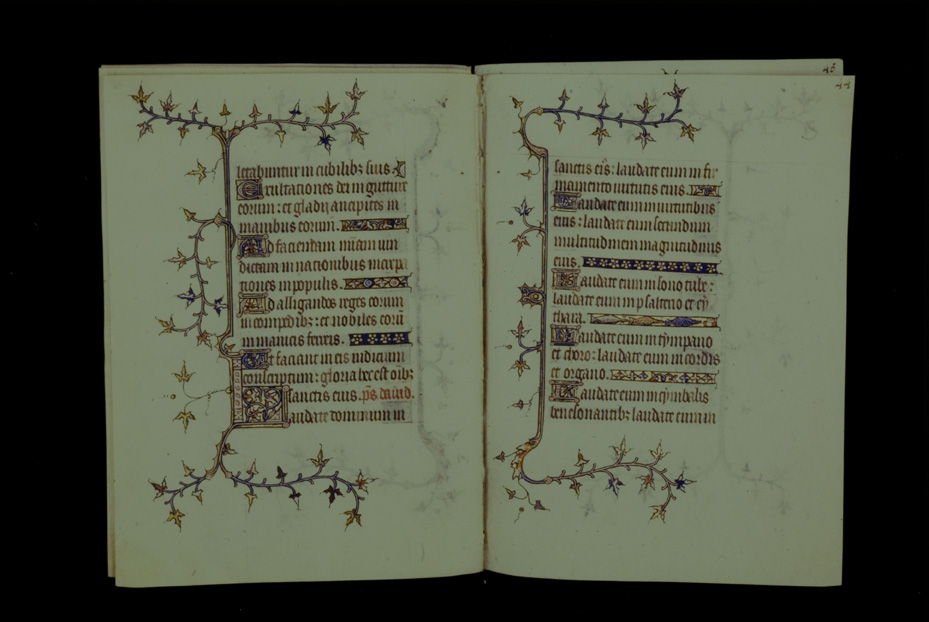 letabuntur in cubilibȝ suis.
Exultationes dei in gutture
eorum: et gladii ancipites in
manibus eorum.
Ad faciendam uindictam in
dictam in nationibus increpa
tiones in populis.
Ad alligandos reges eorum
in compedibȝ: et nobiles eorū
in manicis ferreis.
Et faciant in eis iudicium
conscriptum: gloria hec est oībȝ
sanctis eius. p̄s dauid.
Laudate dominum in
sanctis ei᷒: laudate eum in fir
mamento uirtutis eius.
Laudate eum in uirtutibus
eius: laudate eum secundum
multitudinem magnitudinis
eius.
Laudate eum in sono tube:
laudate eum in psalterio et cy
thara.
Laudate eum in tympano
et choro: laudate eum in cordis
et organo.
Laudate eum in cymbalis
benesonantibȝ laudate eum in
45
44